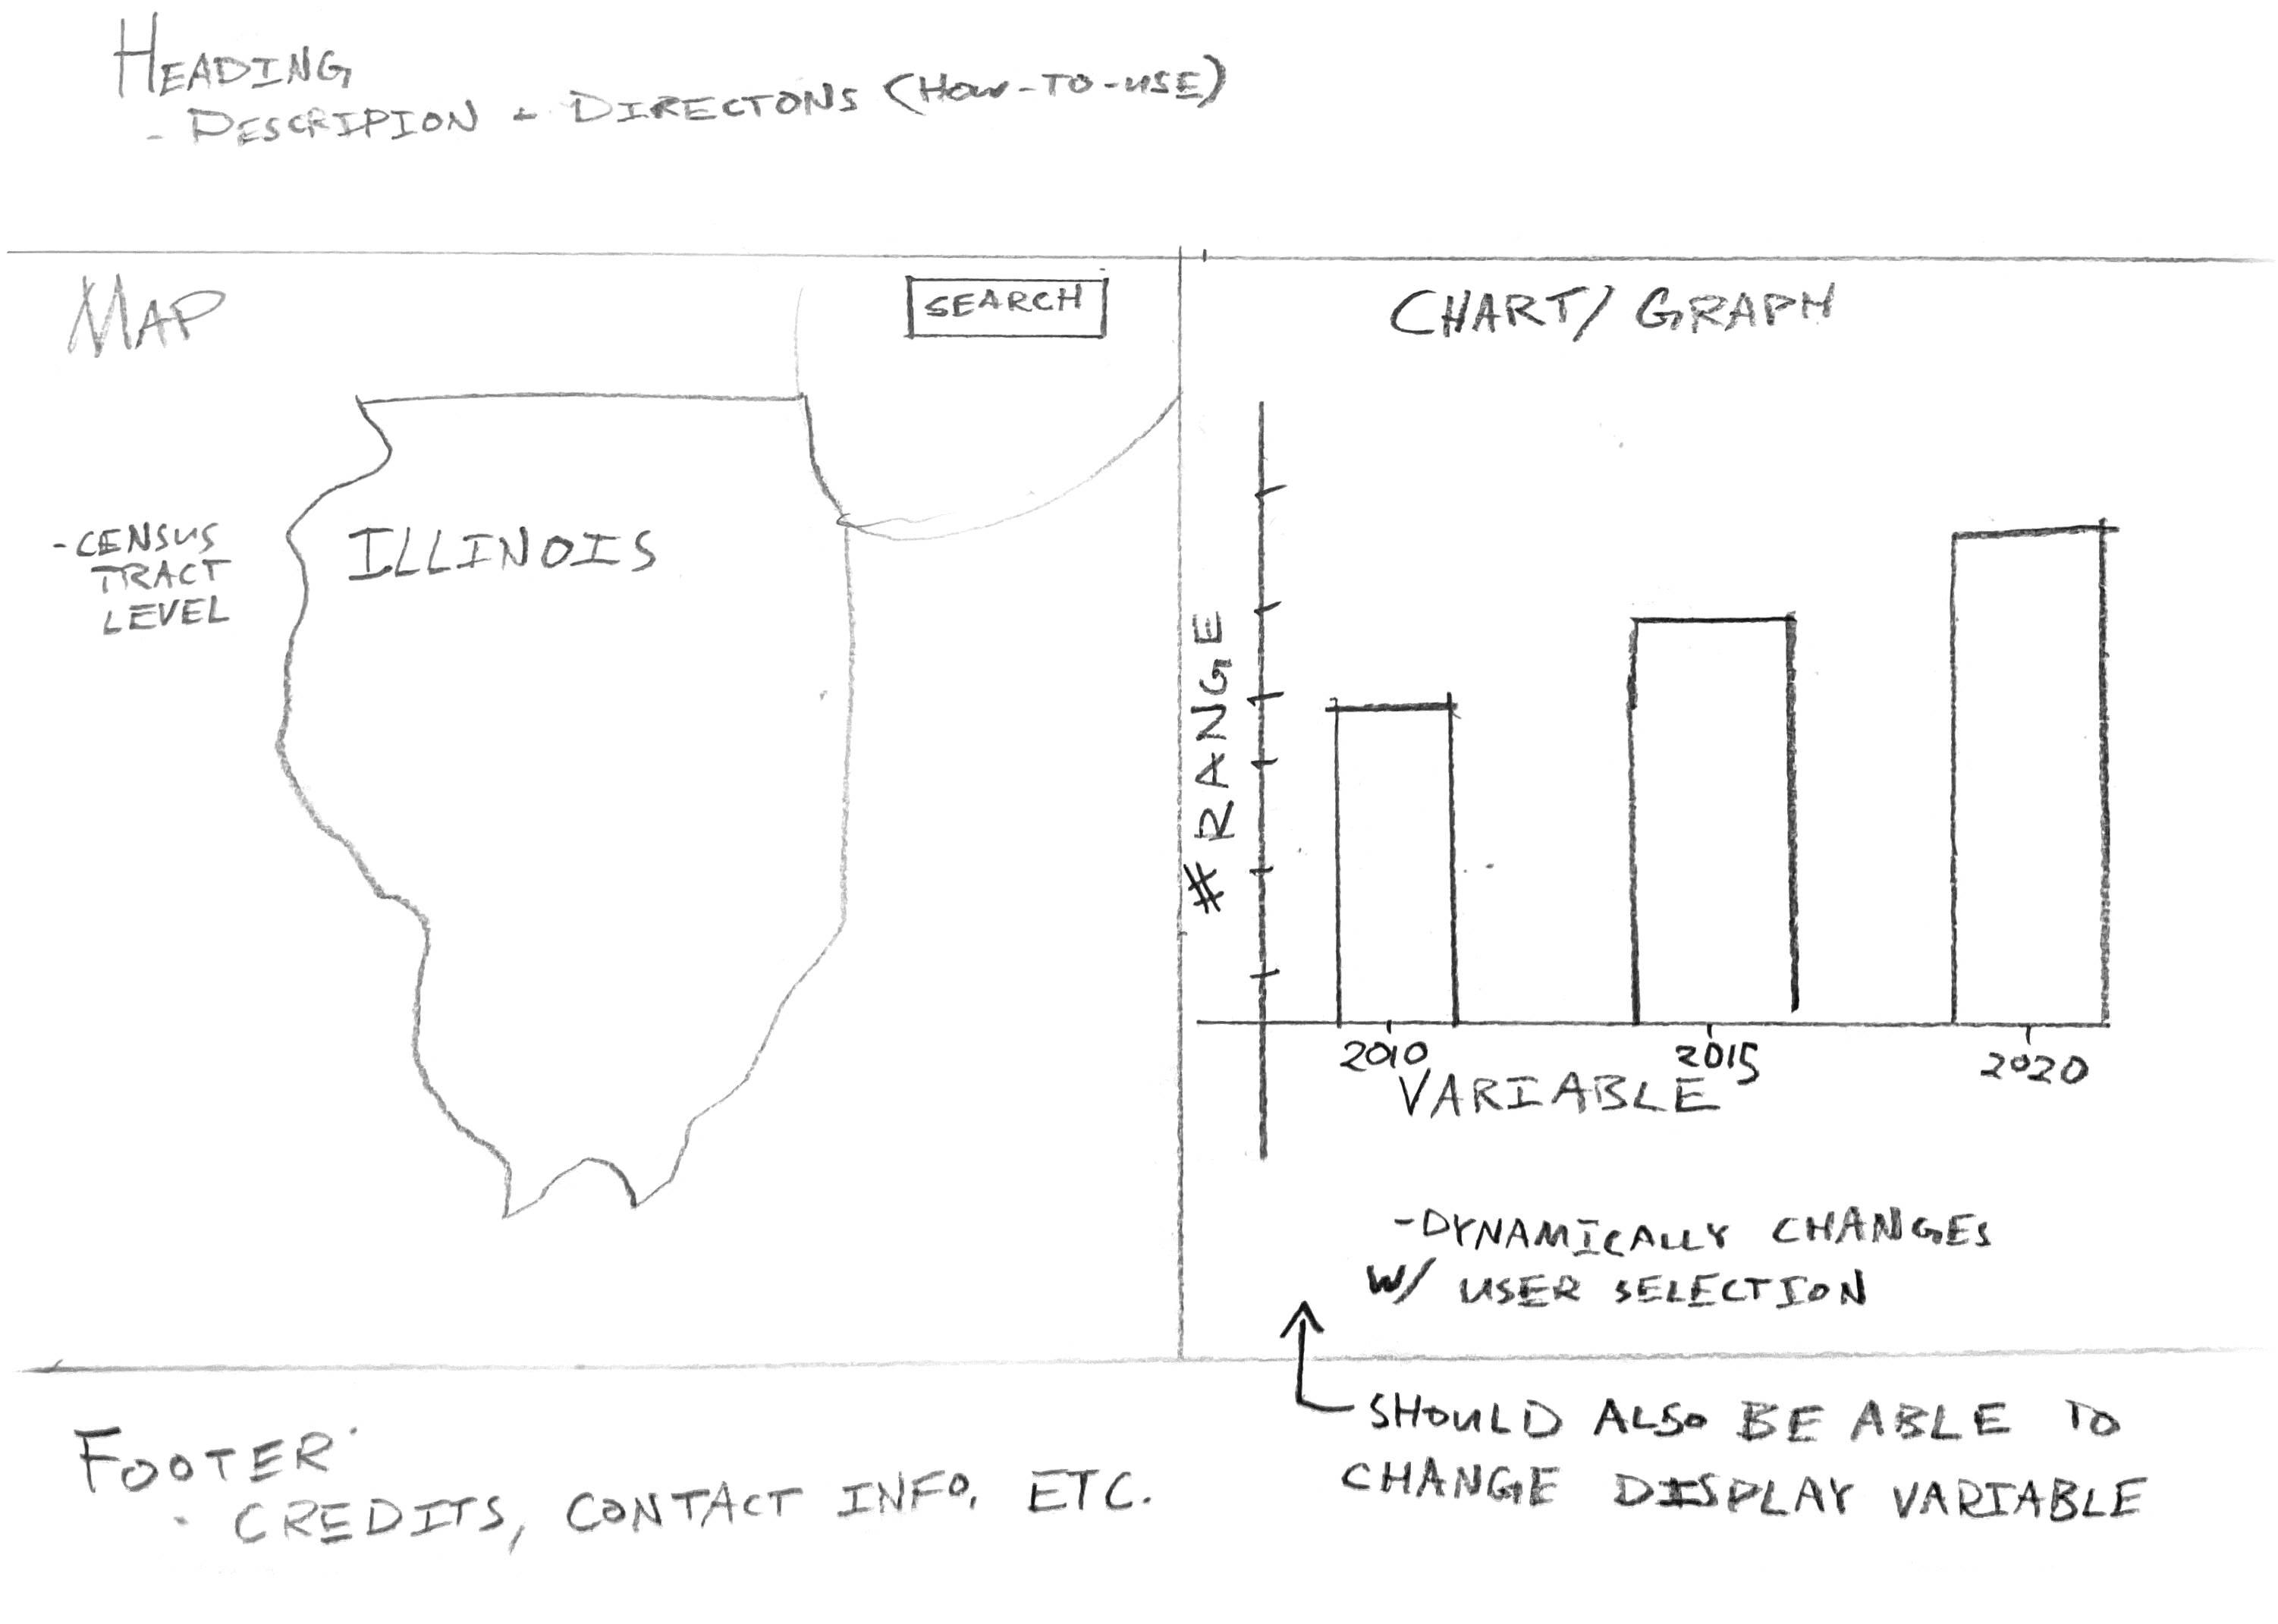 HEADING
- DESCRIPION + DIRECTONS (HOW-TO-USE)
MAP
SEARCH
- CENSUS
TRACT
LEVEL
ILLINOIS
CHART/GRAPH
# RANGE
2010 2015 2020
VARIABLE
- DYNAMICALLY CHANGES
W/ USER SELECTION
SHOULD ALSO BE ABLE TO
CHANGE DISPLAY VARIABLE
FOOTER
- CREDITS, CONTACT INFO, ETC.